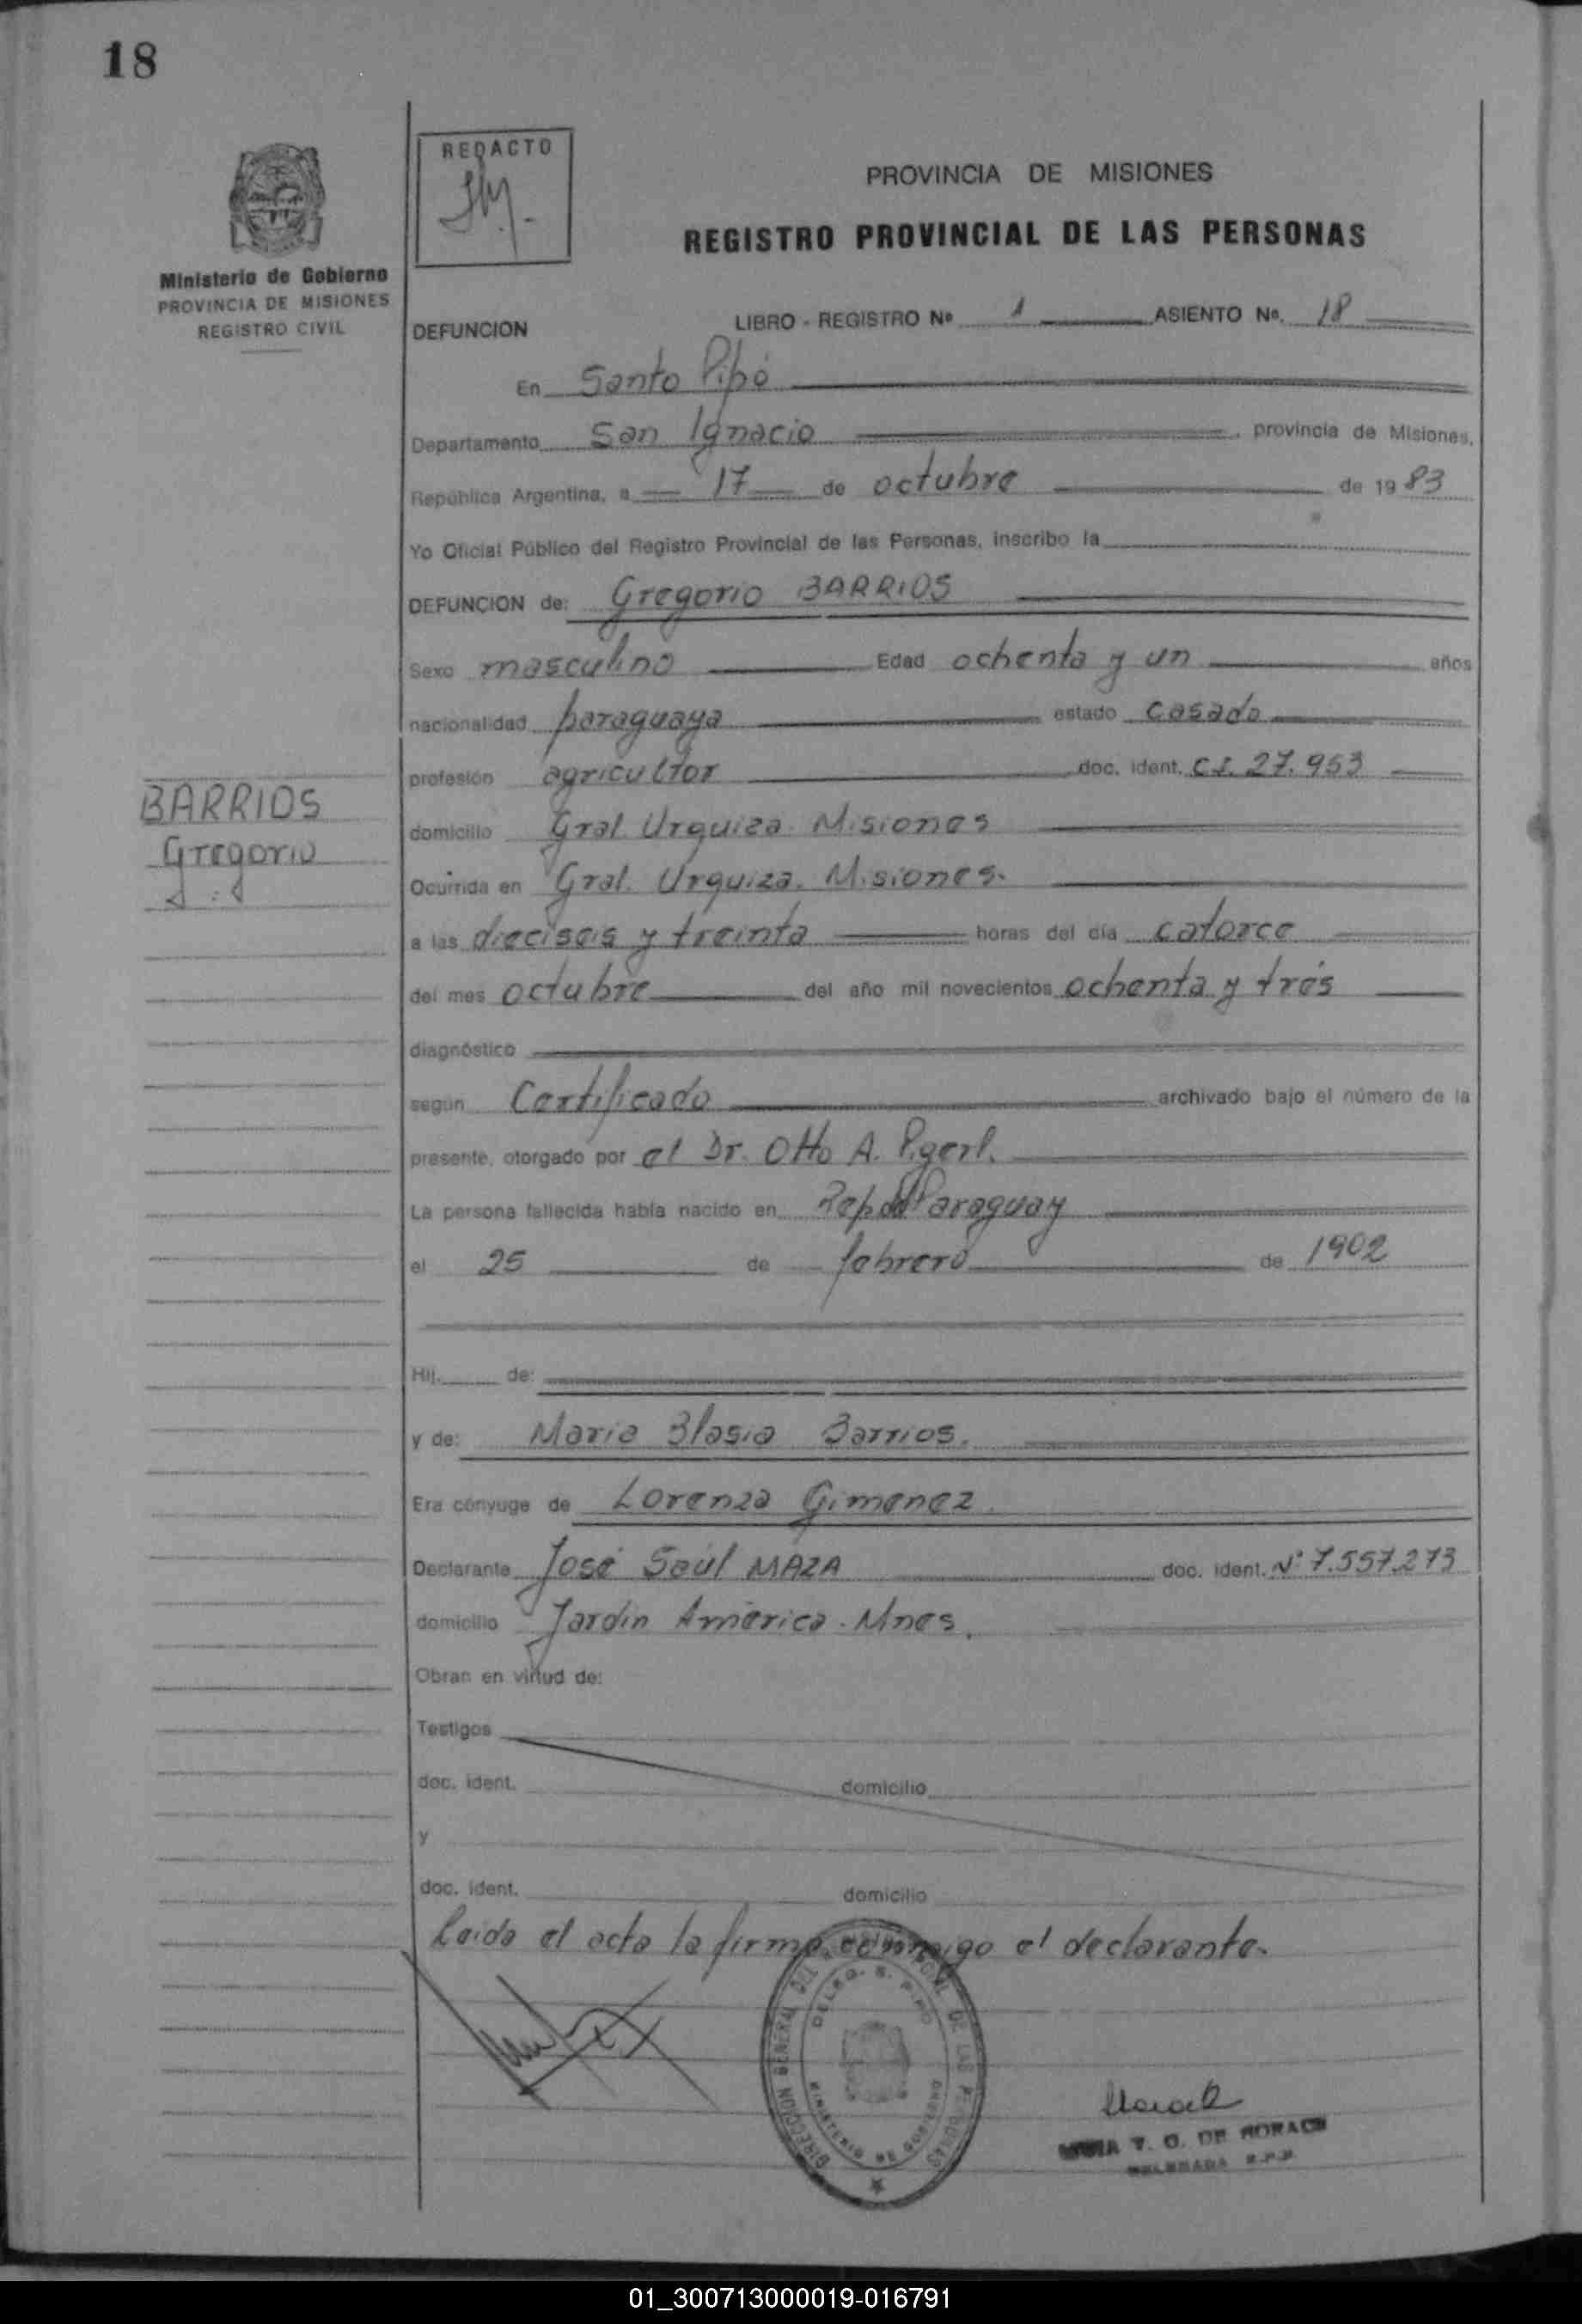 18
REDACTO
PROVINCIA DE MISIONES
REGISTRO PROVINCIAL DE LAS PERSONAS
Ministerio de Gobierno
PROVINCIA DE MISIONES
REGISTRO CIVIL
DEFUNCION LIBRO - REGISTRO Nº 1 ASIENTO Nº. 18
En Santo Pipó
Departamento San Ignacio, provincia de Misiones,
República Argentina, a 17 de octubre de 1983
Yo Oficial Público del Registro Provincial de las Personas, inscribo la
DEFUNCION de: Gregorio BARRIOS
Sexo masculino Edad ochenta y un años
nacionalidad paraguaya estado casado
profesión agricultor doc. ident. C.I. 27.953
BARRIOS
Gregorio
domicilio Gral. Urquiza. Misiones
Ocurrida en Gral. Urquiza. Misiones.
a las dieciseis y treinta horas del día catorce
del mes octubre del año mil novecientos ochenta y trés
diagnóstico
según Certificado archivado bajo el número de la
presente, otorgado por el Dr. Otto A. Pigerl.
La persona fallecida había nacido en Rep. del Paraguay
el 25 de febrero de 1902
Hij de:
y de: Maria Blasia Barrios.
Era cónyuge de Lorenza Gimenez.
Declarante José Saúl MAZA doc. ident. Nº 7.557.273
domicilio Jardín América - Mnes.
Obran en virtud de:
Testigos
doc. ident. domicilio
y
doc. ident. domicilio
Leida el acta la firma conmigo el declarante.
DIRECCION GENERAL DEL DE LAS PERSONAS
DELEG. S. PIPO
MINISTERIO DE GOBIERNO
T. G. DE MORACE
DELEGADA R.P.P.
01_300713000019-016791